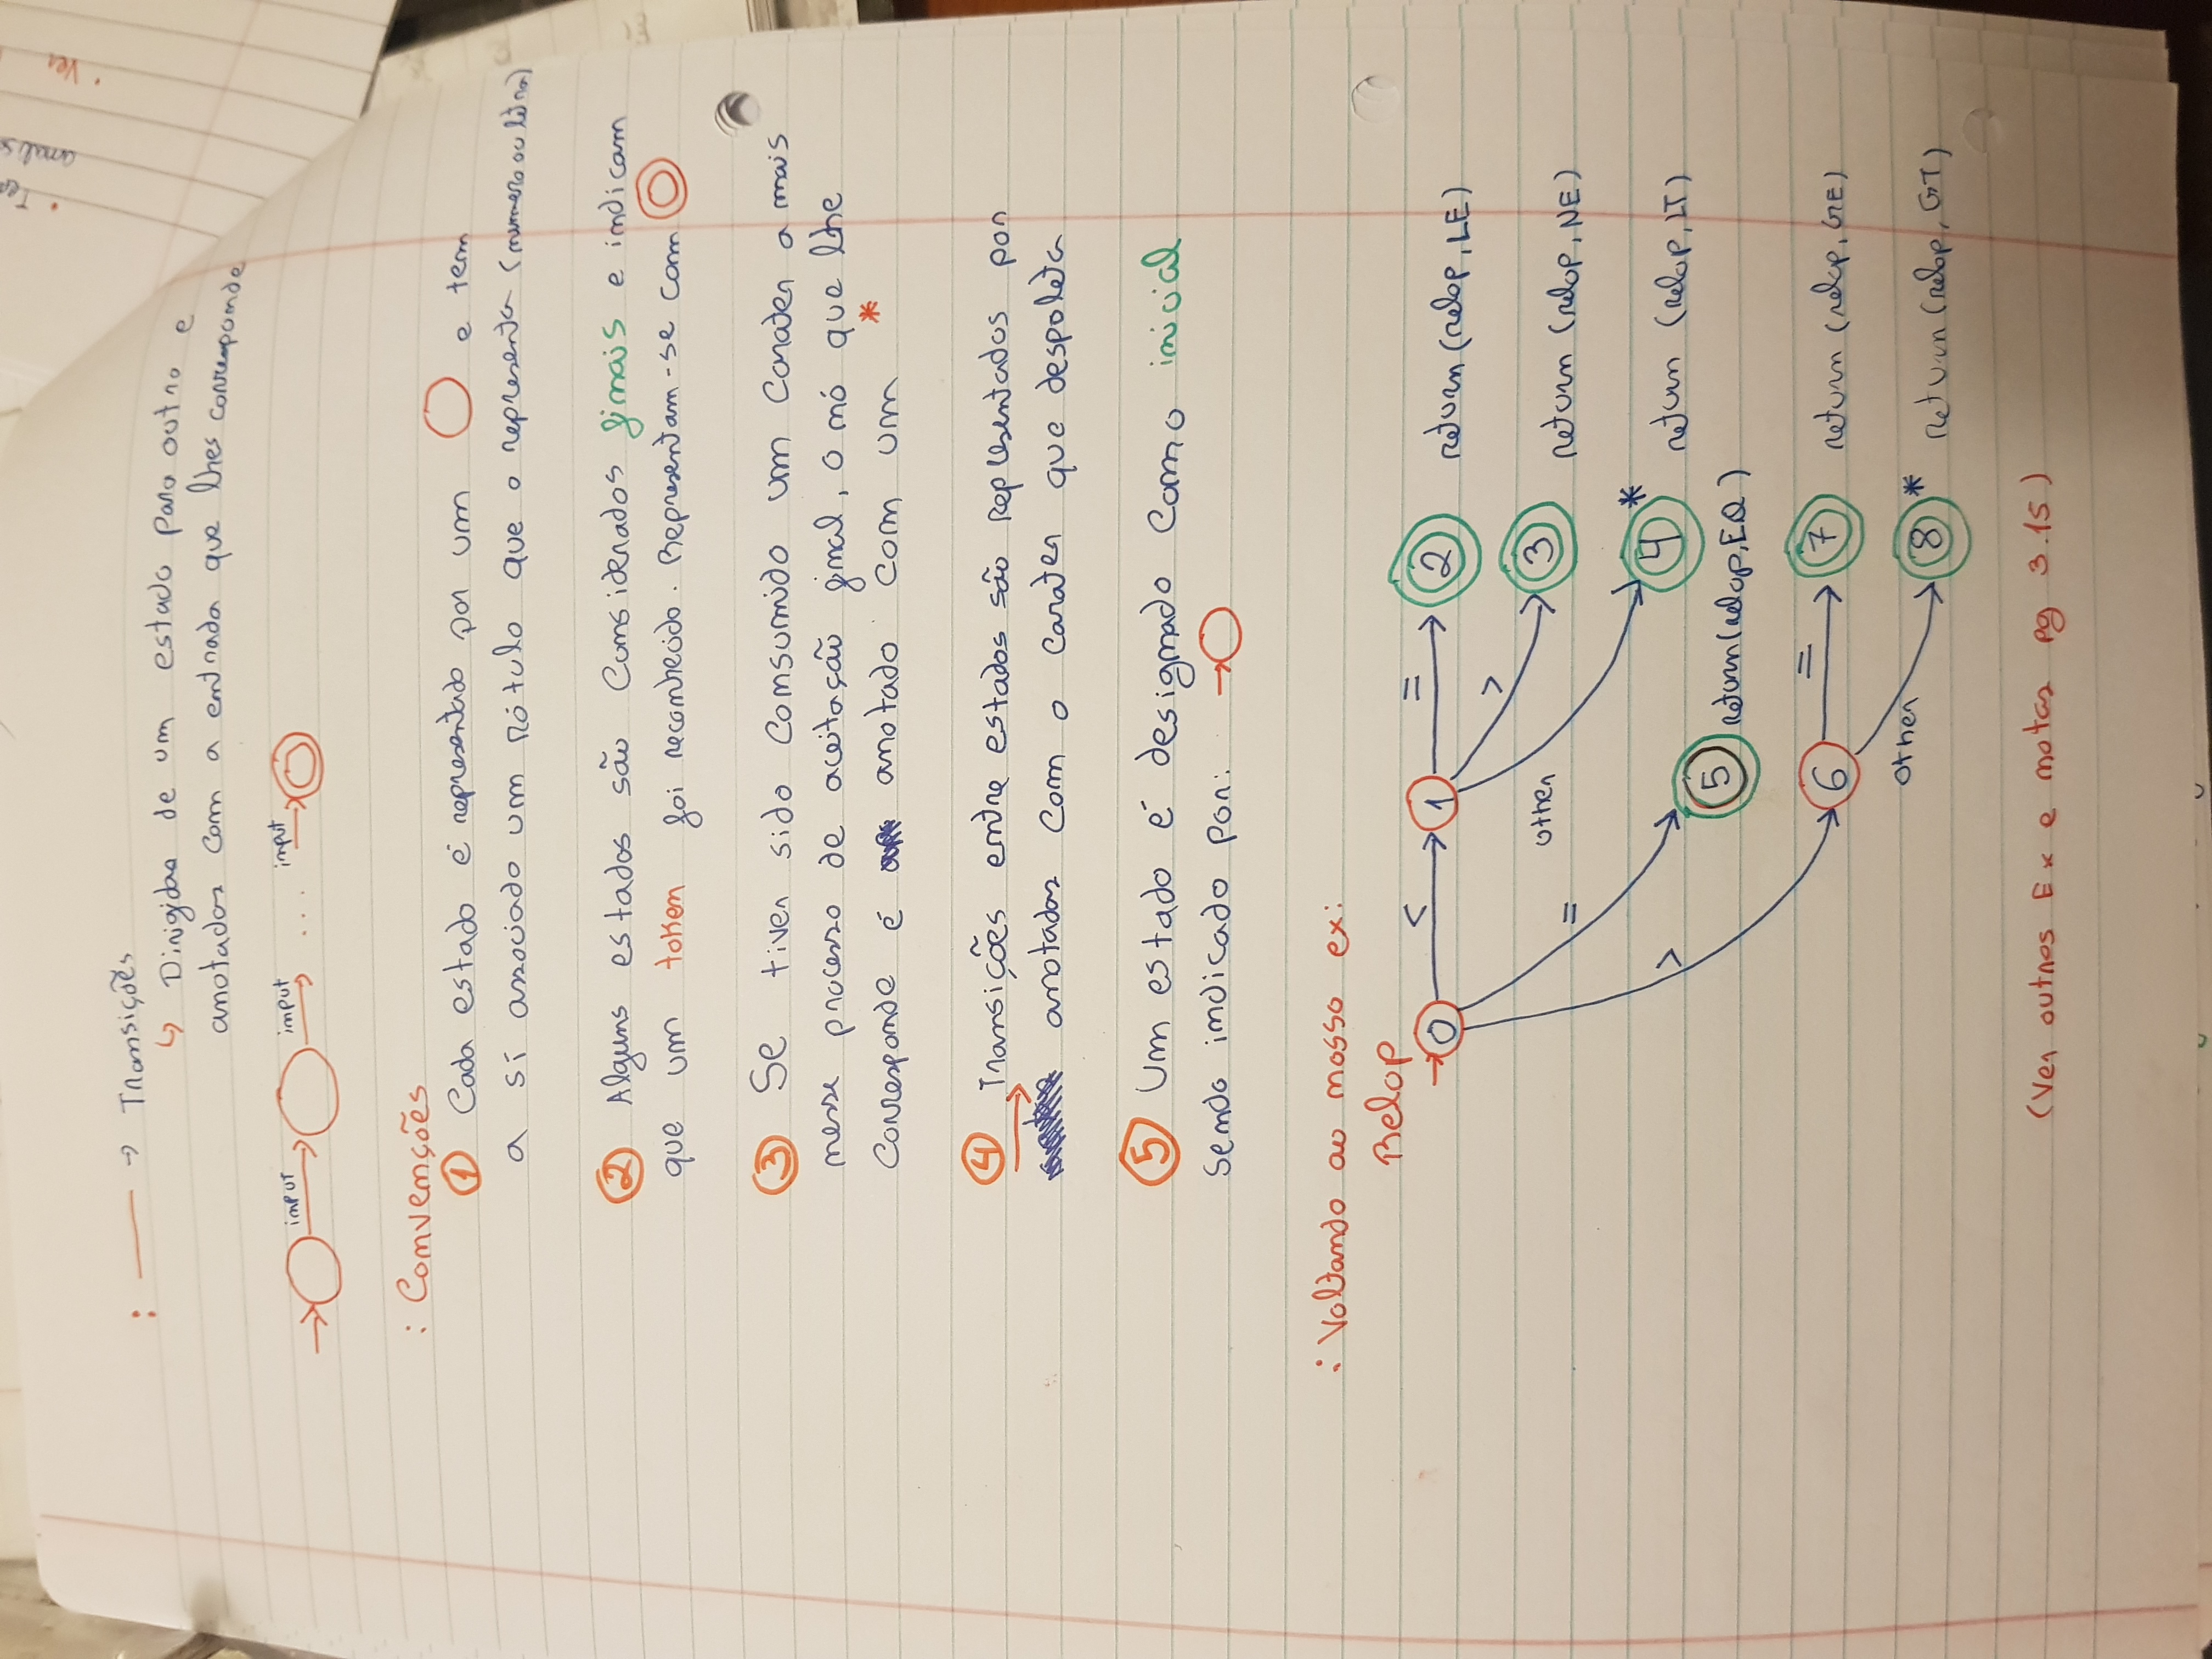 : —— → Transições
↳ Dirigidas de um estado para outro e
anotadas com a entrada que lhes corresponde
input input ... input
: Convenções
① Cada estado é representado por um ○ e tem
a sí associado um rótulo que o representa (numero ou letra)
② Alguns estados são considerados finais e indicam
que um token foi reconhecido. Representam-se com ◎
③ Se tiver sido consumido um carater a mais
nesse processo de aceitação final, o nó que lhe
corresponde é anotado com um *
④ Transições entre estados são representados por
→ anotadas com o carater que despoleta
⑤ Um estado é designado como inicial
sendo indicado por: →○
: Voltando ao nosso ex:
Relop
0 < 1 = 2 return (relop, LE)
> 3 return (relop, NE)
other
=
4 * return (relop, LT)
>
5 return (relop, EQ)
6 = 7 return (relop, GE)
other 8 * return (relop, GT)
(Ver outros Ex e notas pg 3.15)
• Ter
analis
• Ver